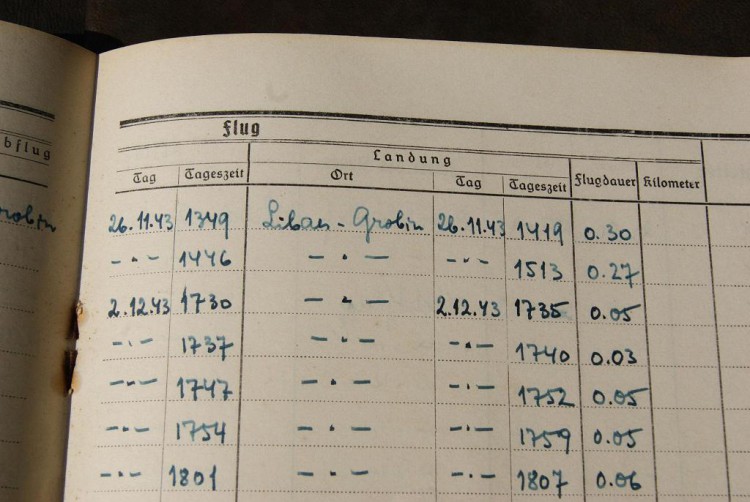 bflug
Flug
Landung
Tag Tageszeit Ort Tag Tageszeit Flugdauer Kilometer
robin 26.11.43 1349 Libau - Grobin 26.11.43 1419 0.30
-"- 1446 -"- -"- 1513 0.27
2.12.43 1730 -"- 2.12.43 1735 0.05
-"- 1737 -"- -"- 1740 0.03
-"- 1747 -"- -"- 1752 0.05
-"- 1754 -"- -"- 1759 0.05
-"- 1801 -"- -"- 1807 0.06